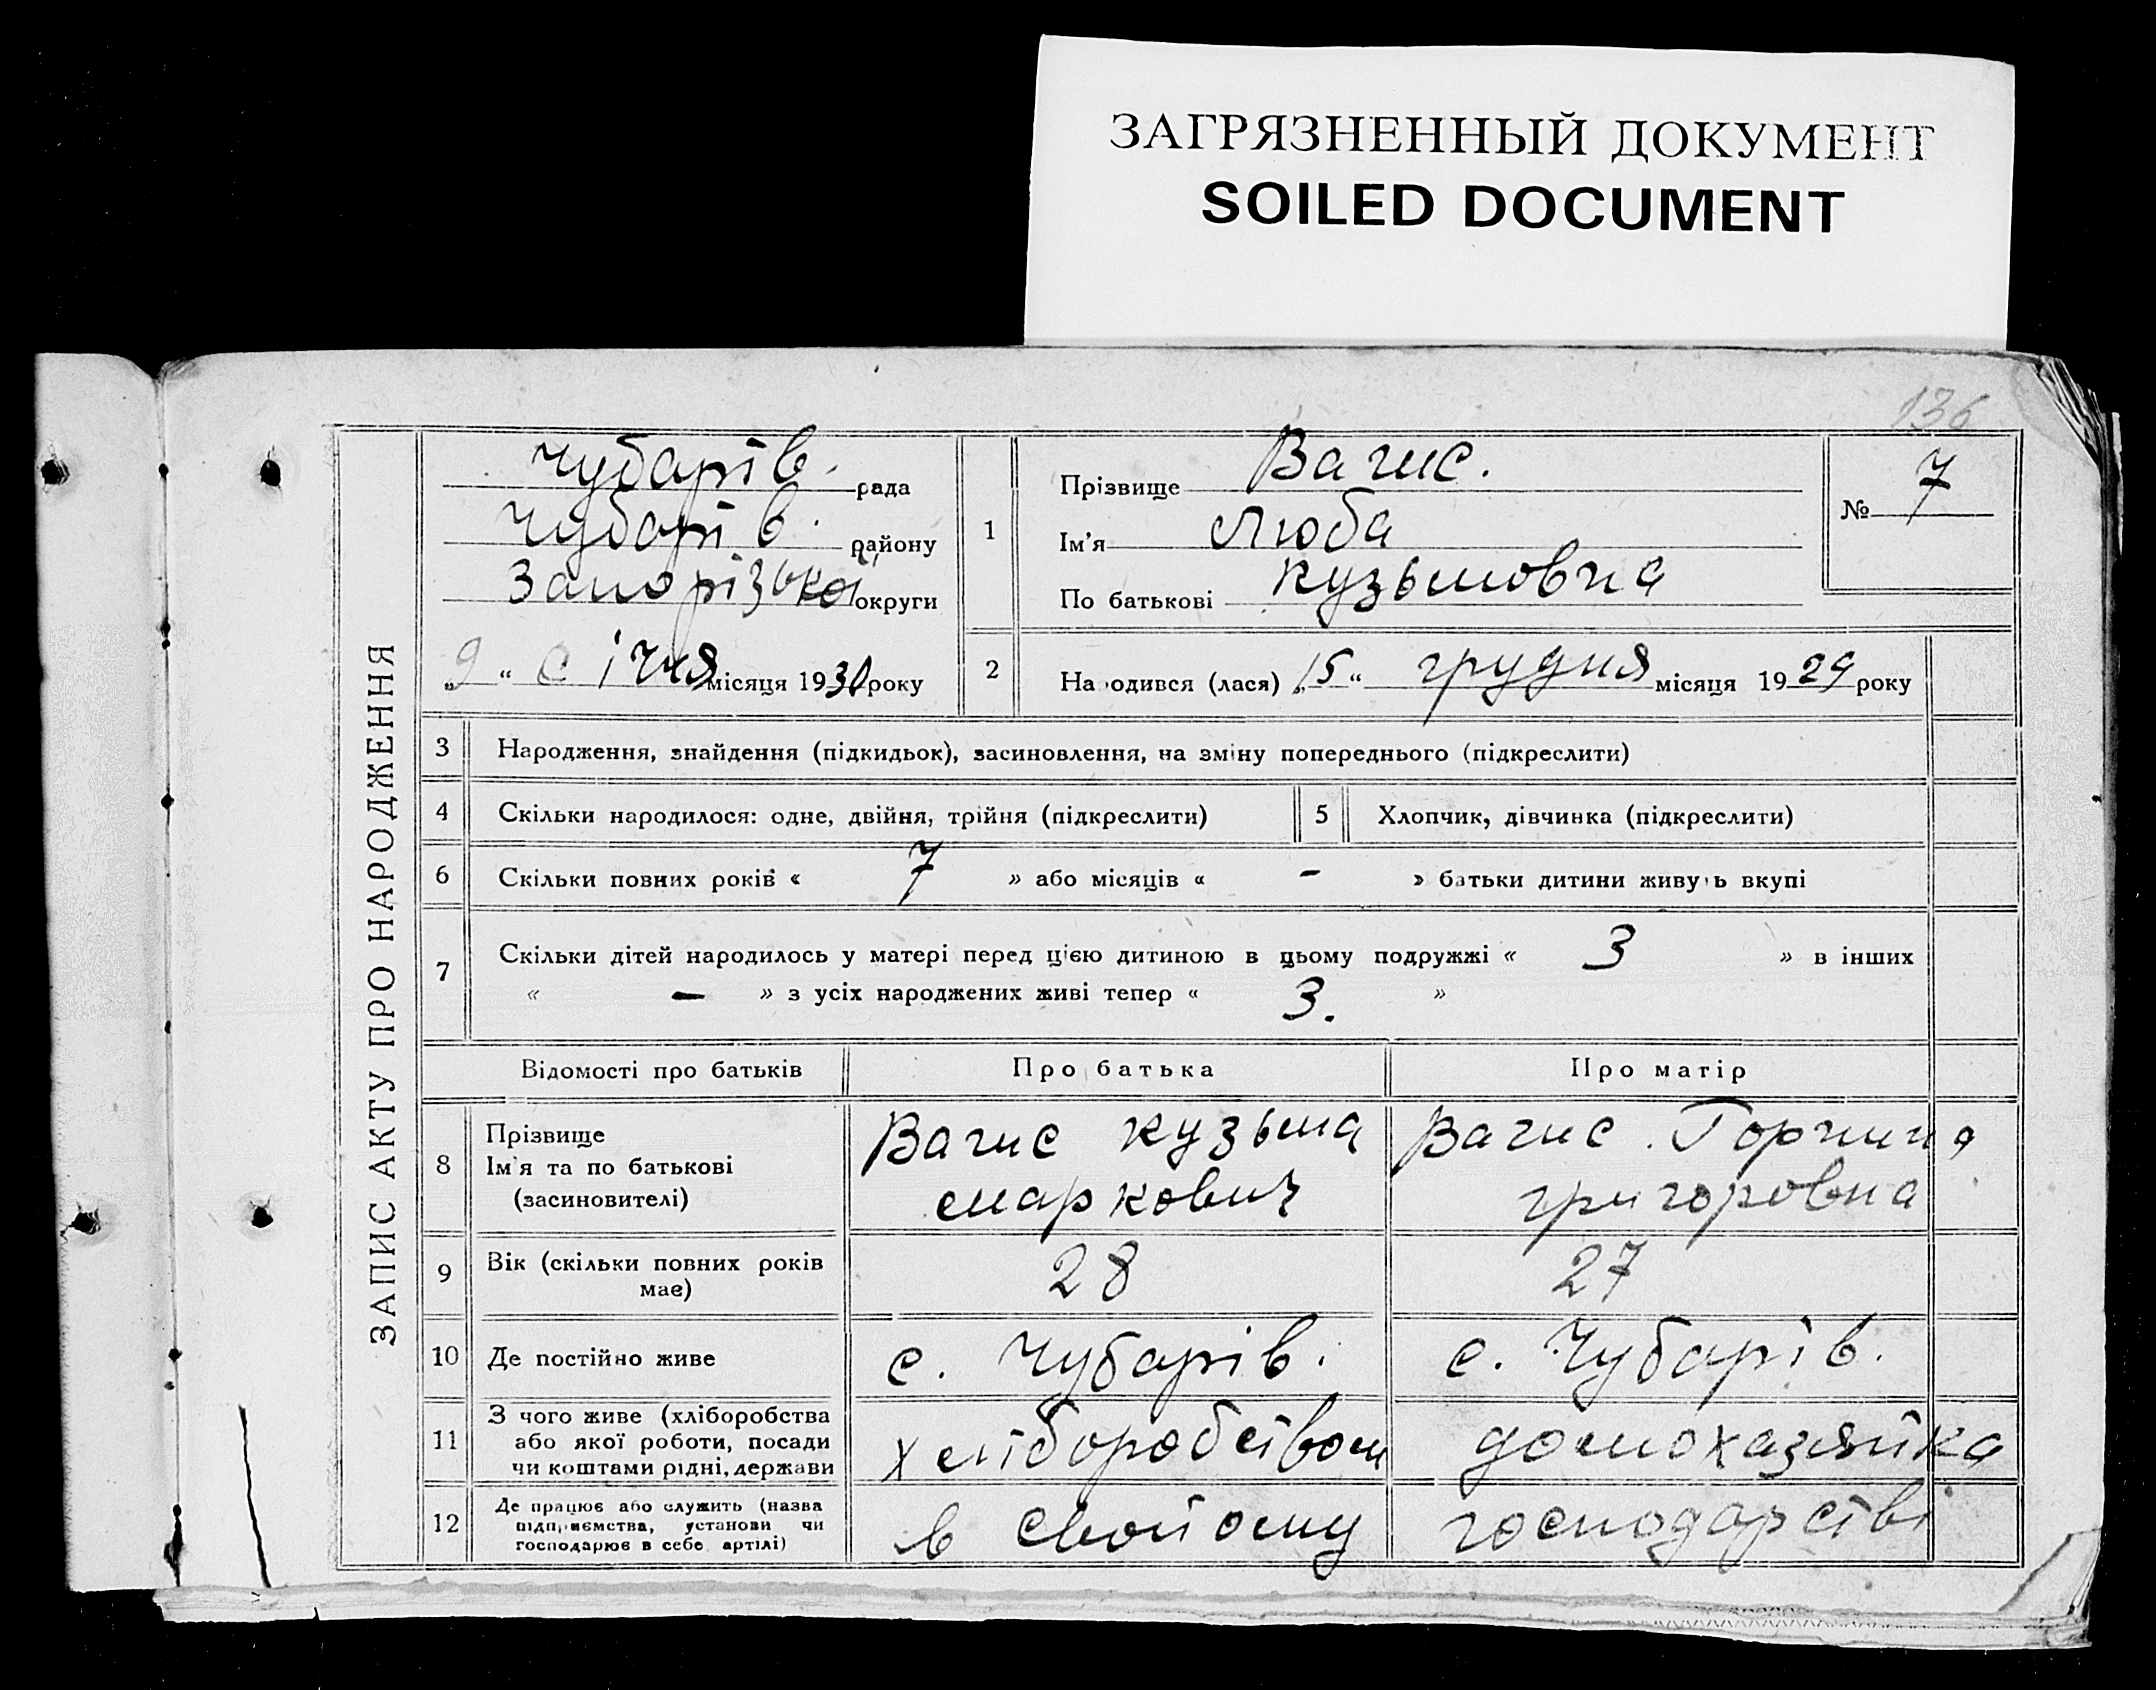 ЗАГРЯЗНЕННЫЙ ДОКУМЕНТ
SOILED DOCUMENT
136
ЗАПИС АКТУ ПРО НАРОДЖЕННЯ
Чубарів. рада
Чубарів. району
Запорізької округи
„9“ січня місяця 1930 року
1
Прізвище Вагис.
Ім’я Люба
По батькові кузьмовна
№ 7
2 Народився (лася) „15“ грудня місяця 1929 року
3 Народження, знайдення (підкидьок), засиновлення, на зміну попереднього (підкреслити)
4 Скільки народилося: одне, двійня, трійня (підкреслити) 5 Хлопчик, дівчинка (підкреслити)
6 Скільки повних років « 7 » або місяців « - » батьки дитини живуть вкупі
7 Скільки дітей народилось у матері перед цією дитиною в цьому подружжі « 3 » в інших
« — » з усіх народжених живі тепер « 3. »
Відомості про батьків Про батька Про матір
8 Прізвище
Ім’я та по батькові
(засиновителі)
Вагис кузьма
маркович
Вагис. Горпина
григоровна
9 Вік (скільки повних років
має)
28 27
10 Де постійно живе с. Чубарів. с. Чубарів.
11 З чого живе (хліборобства
або якої роботи, посади
чи коштами рідні, держави
хліборобством домохазяйка
12 Де працює або служить (назва
підприємства, установи чи
господарює в себе артілі)
в свойому господарстві